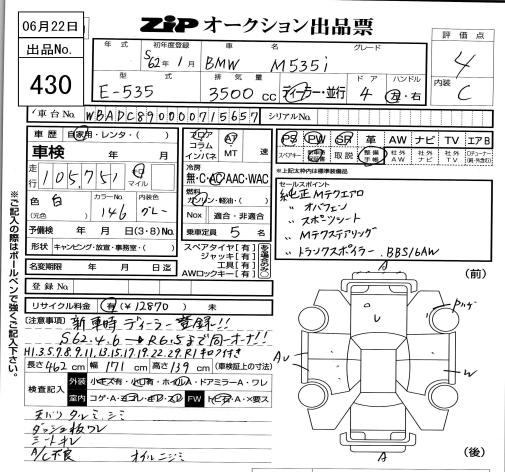 06月22日
ZIP オークション出品票
出品No.
430
年式 初年度登録 車名 グレード
S62年1月 BMW M535i
型式 排気量 ドア ハンドル
E-535 3500cc ディーラー・並行 4 左・右
評価点
4
内装
C
車台No. WBADC89000000715657 シリアルNo.
車歴 自家用・レンタ・( )
車検 年 月
走行 105,751 km マイル
色 白 カラーNo. 146 内装色 グレー
(元色)
予備検 年 月 日(3・8)No.
形状 キャンピング・放送・事務室・( )
名変期限 年 月 日迄
登録No.
リサイクル料金 有(¥12870) 未
フロア コラム インパネ AT MT 速
冷房
無・C・AC・AAC・WAC
燃料
ガソリン・軽油・( )
Nox 適合・非適合
乗車定員 5 名
スペアタイヤ[有]
ジャッキ[有]
工具[有]
AWロックキー[有]
PS PW SR 革 AW ナビ TV エアB
スペアキー 取説 整備手帳 社外AW 社外ナビ 社外TV
※上記太枠内は標準装備品
セールスポイント
純正Mテクエアロ
〃 オバフェン
〃 スポーツシート
〃 Mテクステアリング
〃 トランクスポイラー. BBS16AW
※ご記入の際はボールペンで強くご記入下さい。
[注意事項] 新車時ディーラー登録!!
S62.4.6→R6.5まで同一オーナー!!
H1.3.5.7.8.9.11.13.15.17.19.22.29.R1キロク付き
長さ462cm 幅171cm 高さ139cm (車検証上の寸法)
検査記入 外装 小キズ有・小凹有・ホイルA・ドアミラーA・ワレ
室内 コゲ・A・ヨゴレ・キレ・スレ FW トビ石・A・×要ス
天バリタルミ、シミ
ダッシュ板ワレ
シートキレ
A/C不良 オイルニジミ
(前)
A
U
Pハゲ
AU
W
A
(後)